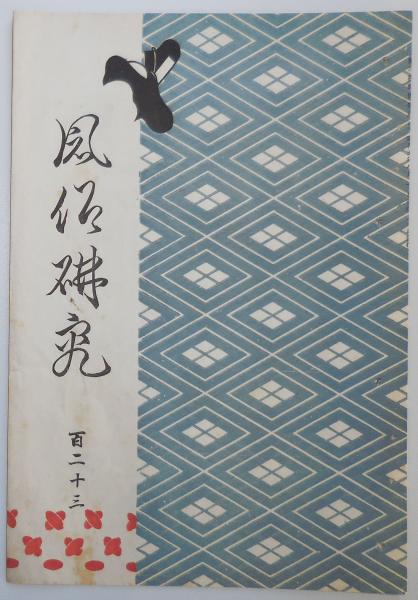 風俗研究
百二十三